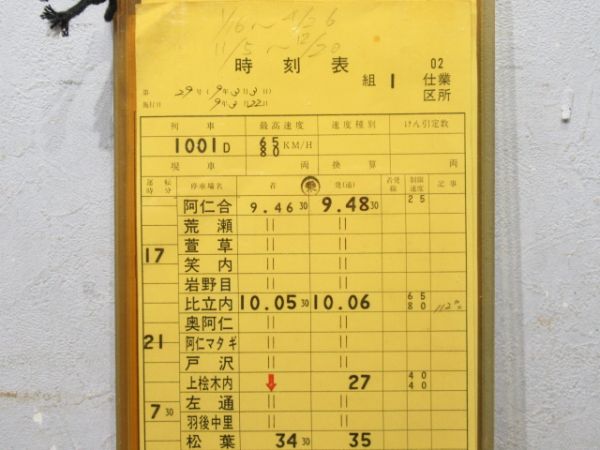 1/16～4/26
11/5～12/20
時刻表
組 1 仕業 02
区所
第 29号 (9年3月3日)
施行日 9年3月22日
列車 最高速度 速度種別 けん引定数
1001D 65 80 KM/H
現車 両 換算 両
運転時分 停車場名 着 発(通) 着発線 制限速度 記事
阿仁合 9.46 30 9.48 30 25
荒瀬 〃 〃
萱草 〃 〃
17
笑内 〃 〃
岩野目 〃 〃
比立内 10.05 30 10.06 65 80
奥阿仁 〃 〃
21
阿仁マタギ 〃 〃
戸沢 〃 〃
上桧木内 ↓ 27 40 40
左通 〃 〃
7 30
羽後中里 〃 〃
松葉 34 30 35